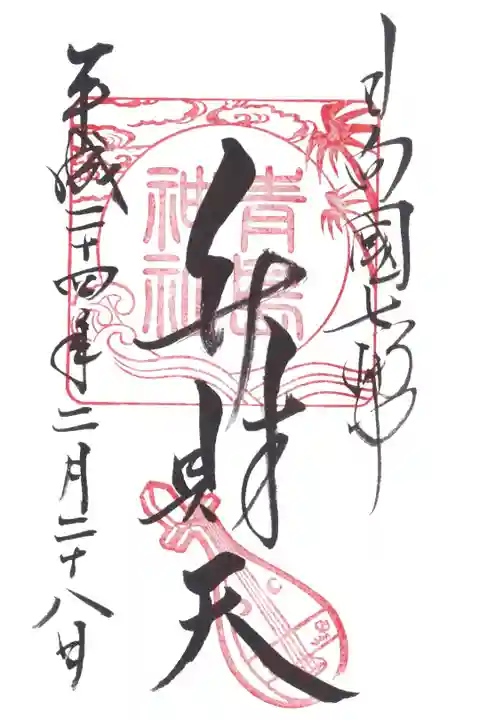 日向國七福神
青島
神社
弁財天
平成二十四年二月二十八日